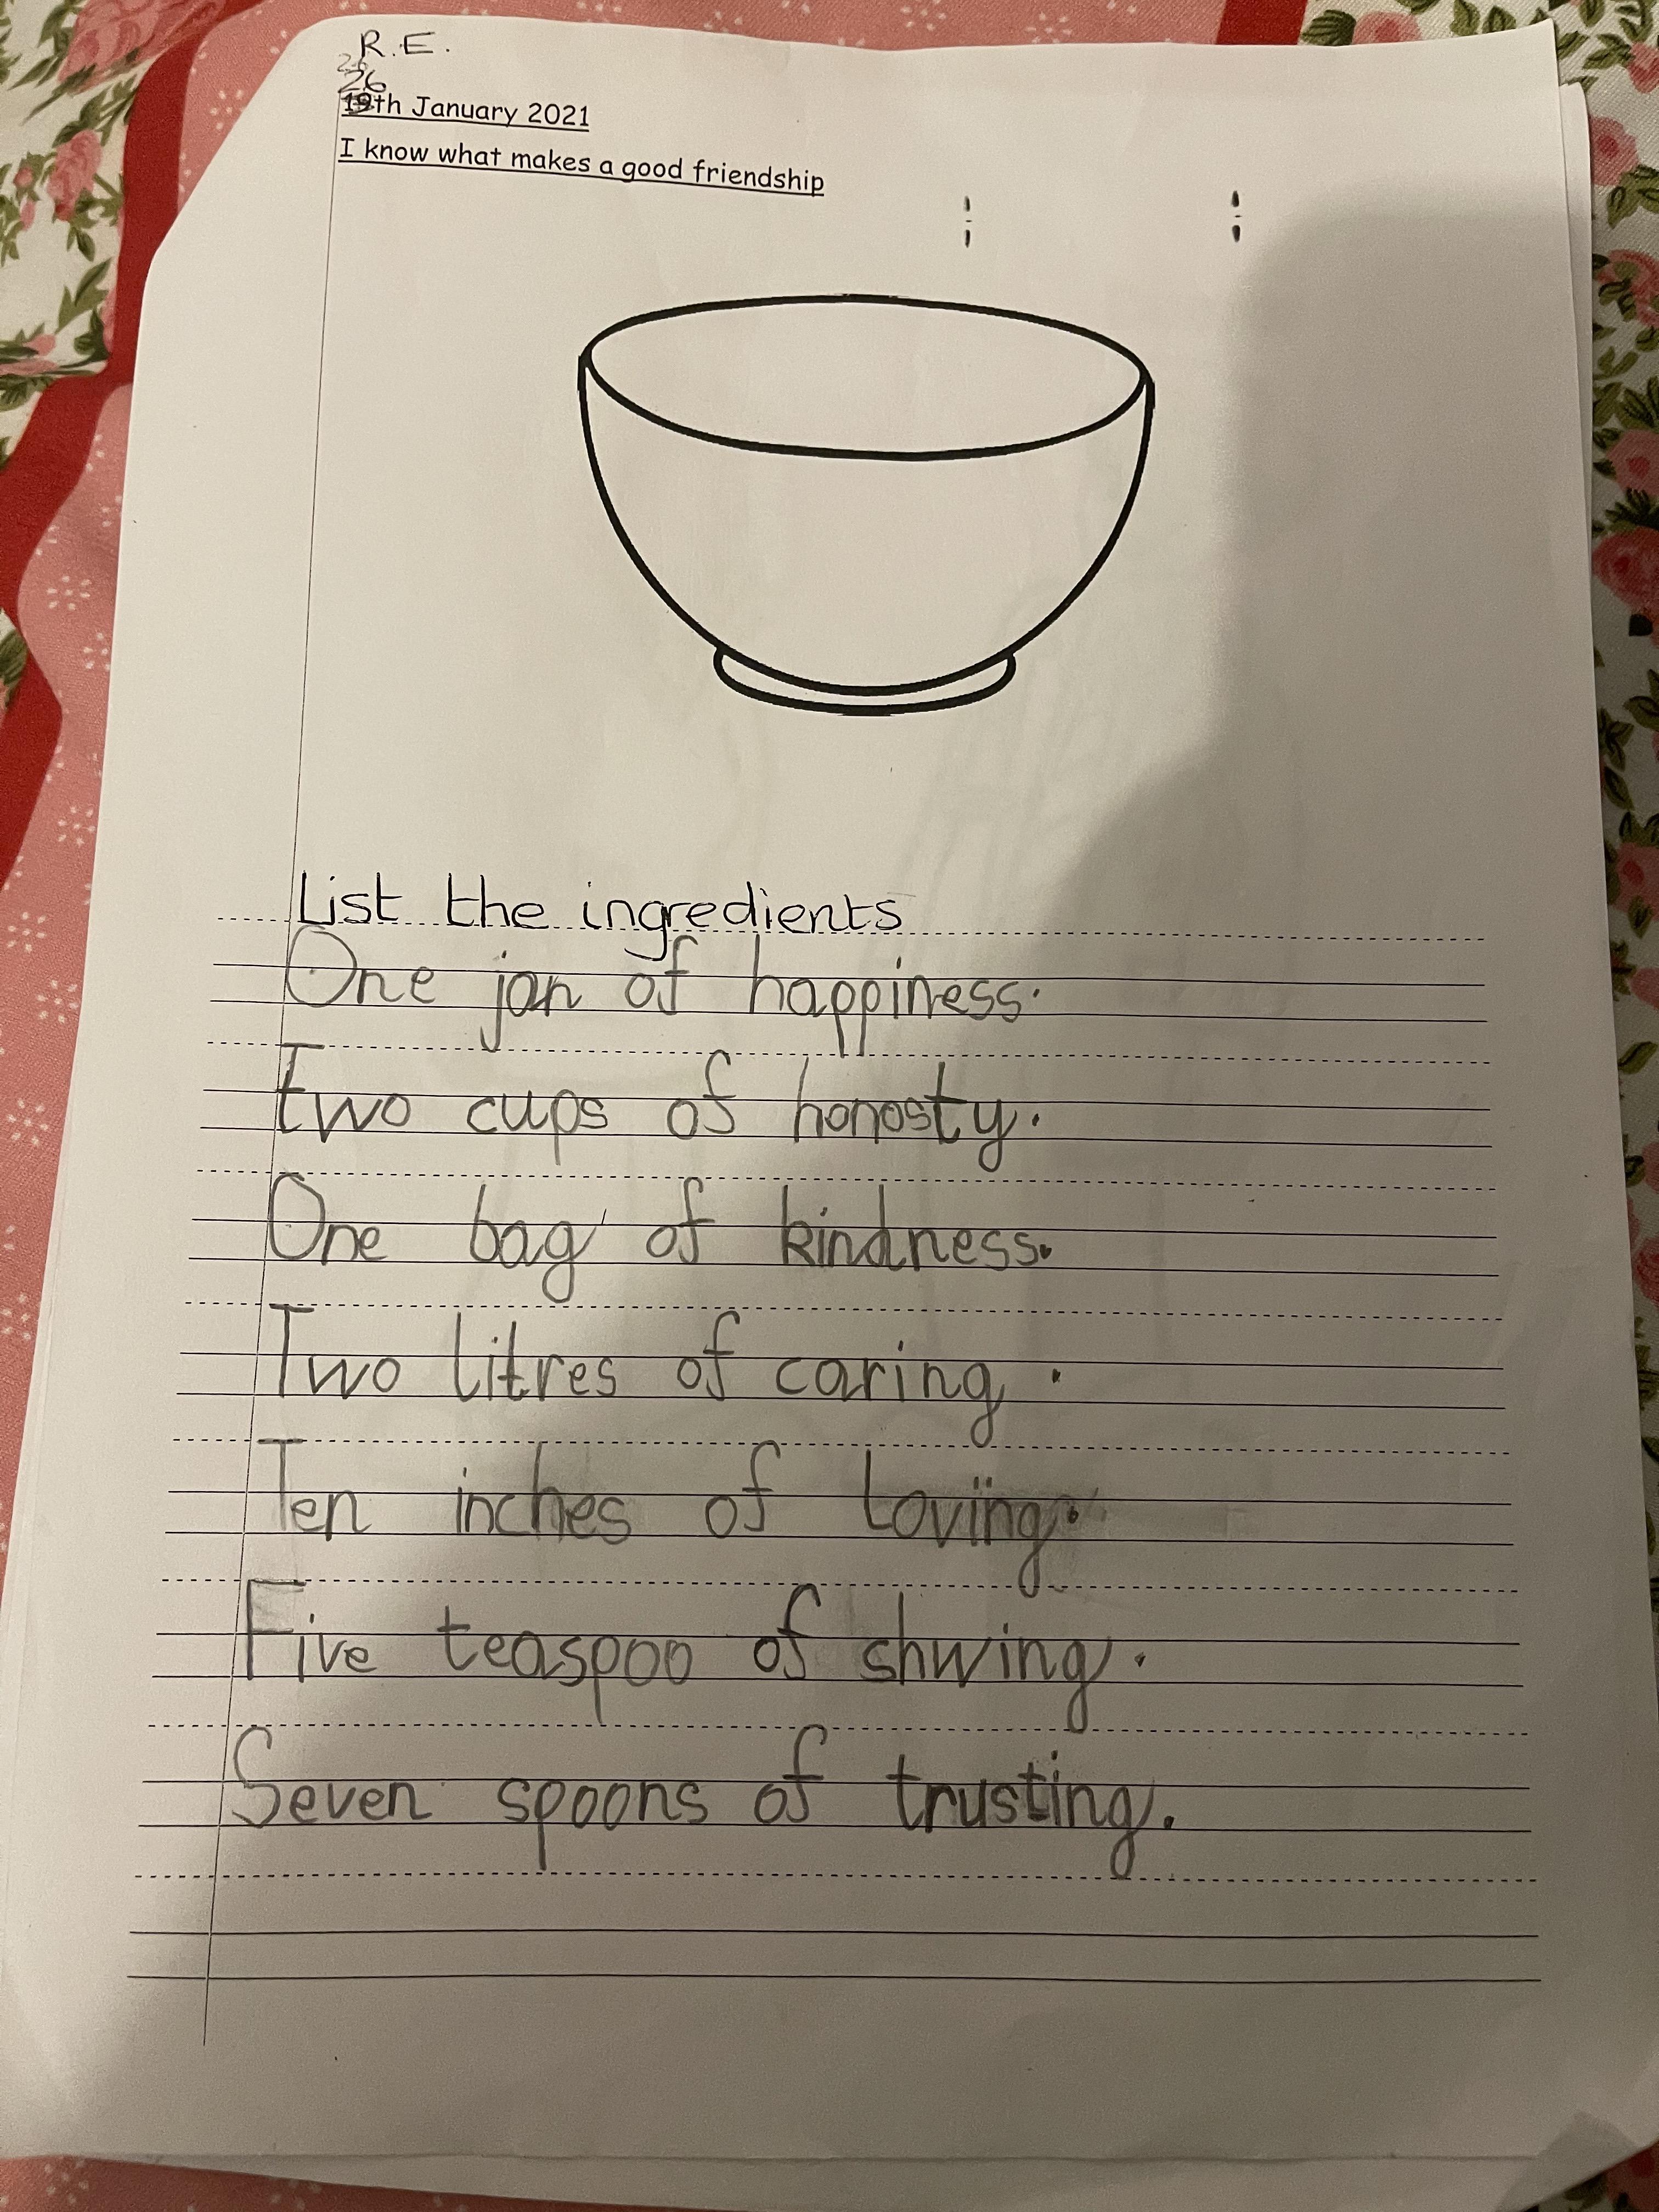 R.E.
26
26
19th January 2021
I know what makes a good friendship
List the ingredients
One jan of happiness.
Two cups of honosty.
One bag of kindness.
Two litres of caring.
Ten inches of Loving.
Five teaspoo of shwing.
Seven spoons of trusting.